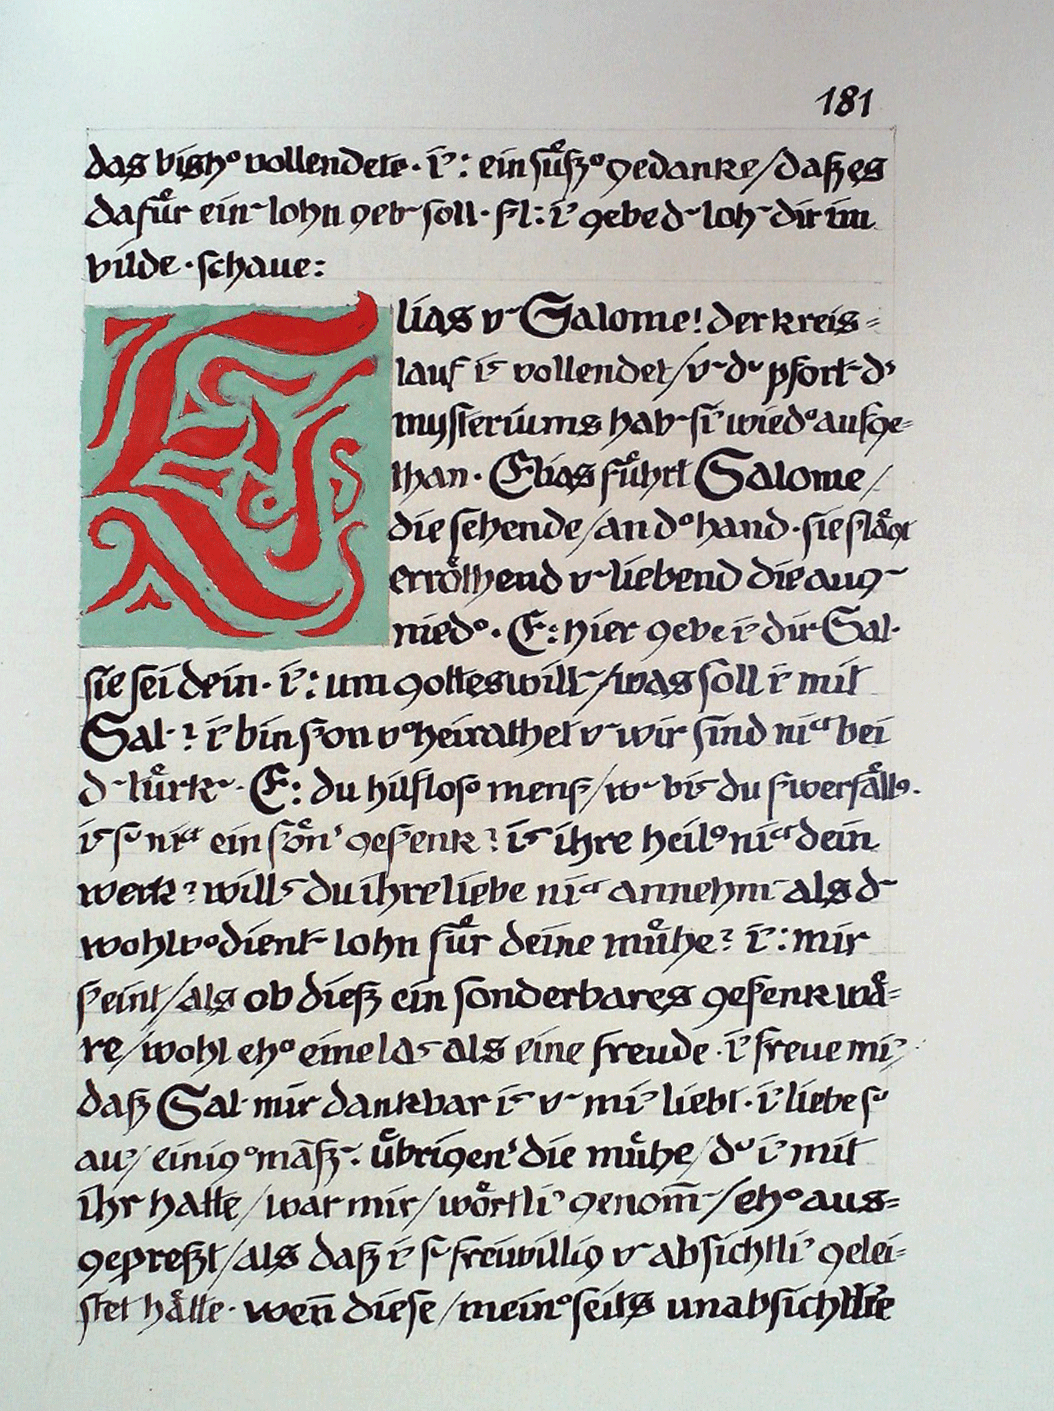 181
das bishº vollendete · i᷑ : ein süßº gedanke / daß es
dafür ein˜ lohn geb˜ soll · ſl : i᷑ gebe d˜ loh˜ dir im
bilde · schaue :
Elias v˜ Salome ! der kreis=
lauf i᷑ vollendet / v˜ d˜ pfort˜ d'
mysteriums hab˜ si᷑ wiedº aufge=
than · Elias führt Salome /
die sehende / an dº hand · sie slägt
erröthend v˜ liebend die aug˜
niedº · E : hier gebe i᷑ dir Sal ·
sie sei dein · i᷑ : um gotteswill˜ / was soll i᷑ mit
Sal · ? i᷑ bin son vºheirathet v˜ wir sind niᵈ bei
d˜ türk˜ · E : du hilflosº mens / w˜ bis˜ du swerfällg ·
i᷑ s˜ niᵈ ein sön' gesenk ? i᷑ ihre heilg niᵈ dein
werk ? wills˜ du ihre liebe niᵈ annehm˜ als d˜
wohlvºdient˜ lohn für deine mühe ? i᷑ : mir
seint / als ob dieß ein sonderbares gesenk wä=
re / wohl ehº eine las˜ als eine freude · i᷑ freue mi᷑ /
daß Sal · mir dankbar i᷑ v˜ mi᷑ liebt · i᷑ liebe s˜
au᷑ / einigºmaß˜ · übrigen' die mühe / d˜ i᷑ mit
ihr hatte / war mir / wörtli᷑ genom̄˜ / ehº aus=
gepreßt / als daß i᷑ s˜ freiwillig v˜ absichtli᷑ gelei=
stet hätte · wen̄ diese / meinºseits unabsichtlte